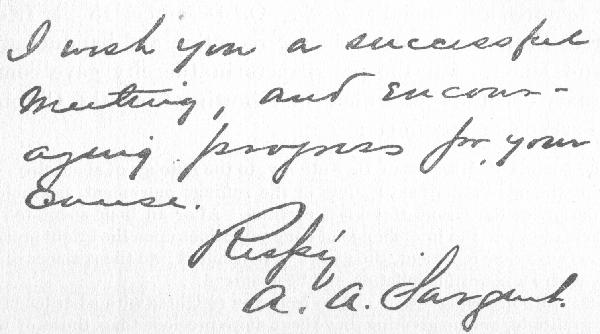 I wish you a successful
meeting, and encour-
aging progress for your
cause.
Respy
A. A. Sargent.